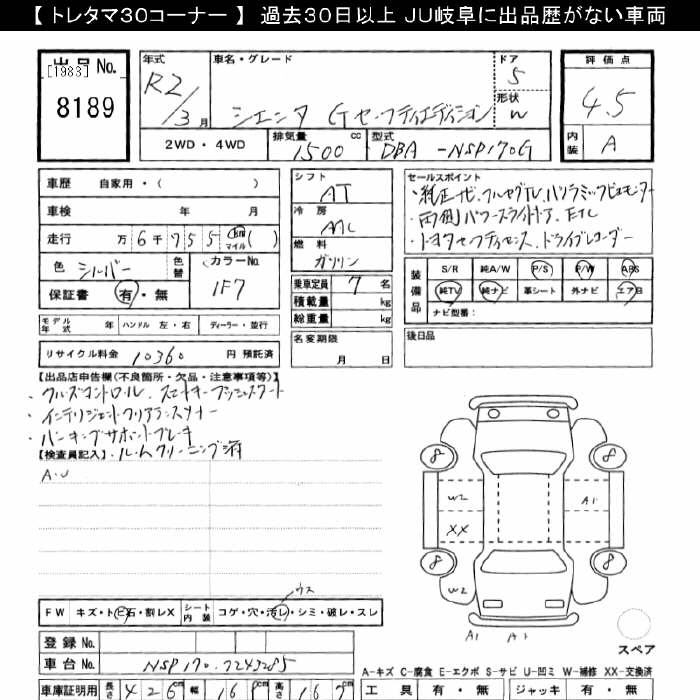 【 トレタマ30コーナー 】 過去30日以上 JU岐阜に出品歴がない車両
出品 No.
[1983]
8189
年式
R2/3月
車名・グレード
シエンタ Gセーフティエディション
ドア
5
形状
W
評価点
4.5
内装
A
2WD・4WD
排気量
1500 cc
型式
DBA-NSP170G
車歴 自家用・( )
車検 年 月
走行 万 6千955 km マイル ( )
色 シルバー
色替
カラーNo.
1F7
保証書 有・無
シフト
AT
冷房
AAC
燃料
ガソリン
乗車定員 7 名
積載量 kg
総重量 kg
名変期限
月 日
セールスポイント
・純正ナビ、フルセグTV、パノラミックビューモニター
・両側パワースライドドア、ETC
・トヨタセーフティセンス、ドライブレコーダー
装備品
S/R 純A/W P/S P/W ABS
純TV 純ナビ 革シート 外ナビ エアB
ナビ型番：
後日品
モデル年式 年 ハンドル 左・右 ディーラー・並行
リサイクル料金 10360 円 預託済
【出品店申告欄(不良箇所・欠品・注意事項等)】
・クルーズコントロール、スマートキープッシュスタート
・インテリジェントクリアランスソナー
・パーキングサポートブレーキ
【検査員記入】・ルームクリーニング済
A.U
8 8
W2 A1
XX
8 8
W2
A1 A1
スペア
ウス
FW キズ・トビ石・割レX シート内装 コゲ・穴・汚レ・シミ・破レ・スレ
登録 No.
車台 No. NSP170-7243285
A-キズ C-腐食 E-エクボ S-サビ U-凹ミ W-補修 XX-交換済
車庫証明用 長さ 426cm 幅 169cm 高さ 167
工具 有・無 ジャッキ 有・無